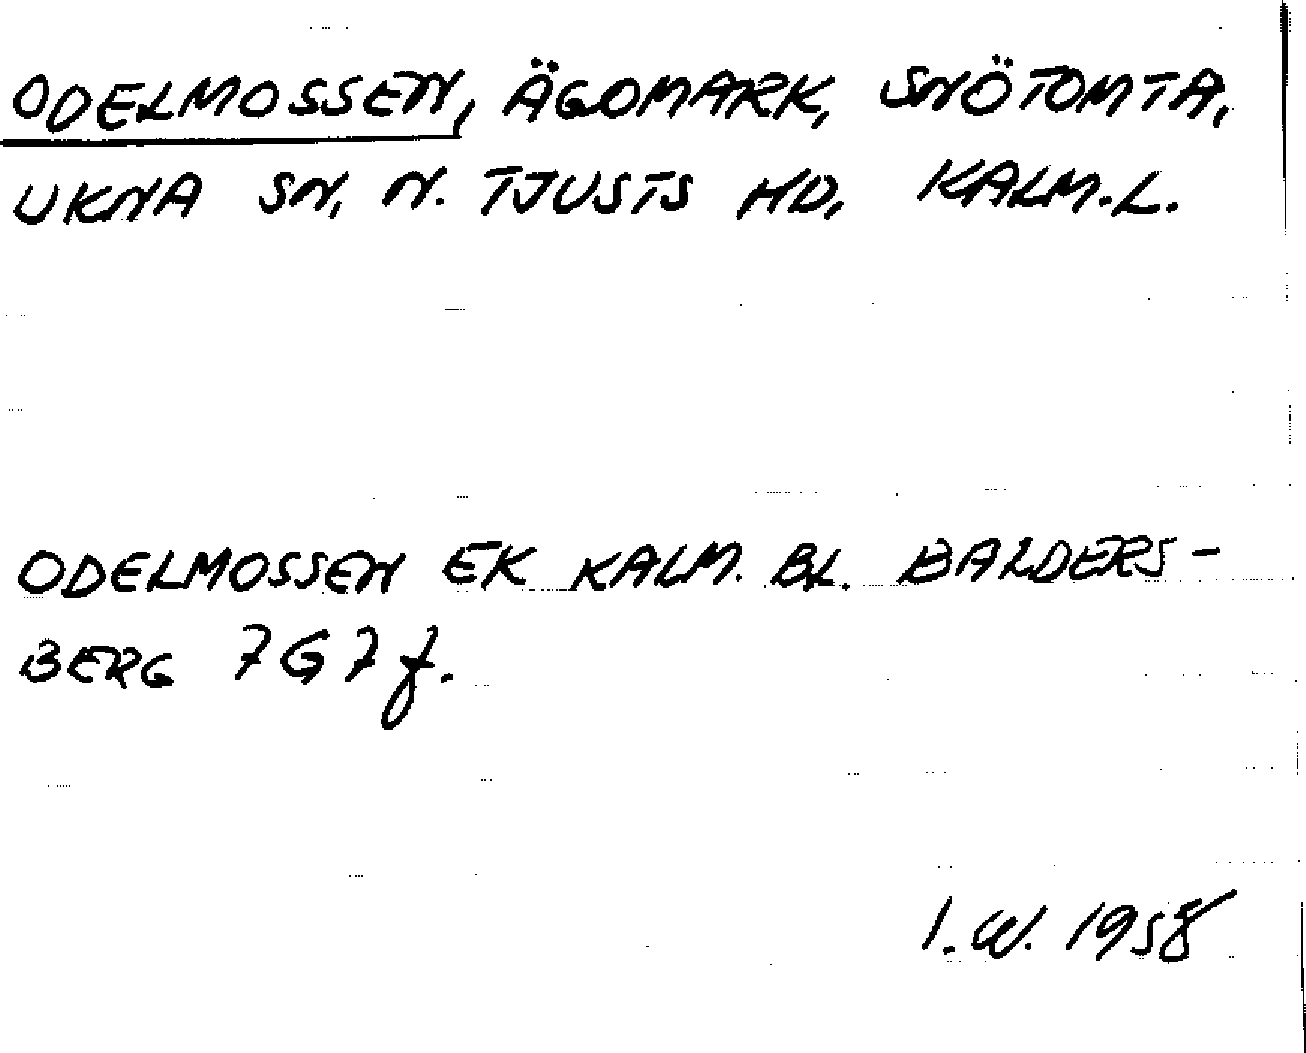 ODELMOSSEN, ÄGOMARK, SNÖTOMTA,
UKNA SN, N. TJUSTS HD, KALM.L.
ODELMOSSEN EK KALM. BL. BALDERS-
BERG 7G7f.
I.W. 1958